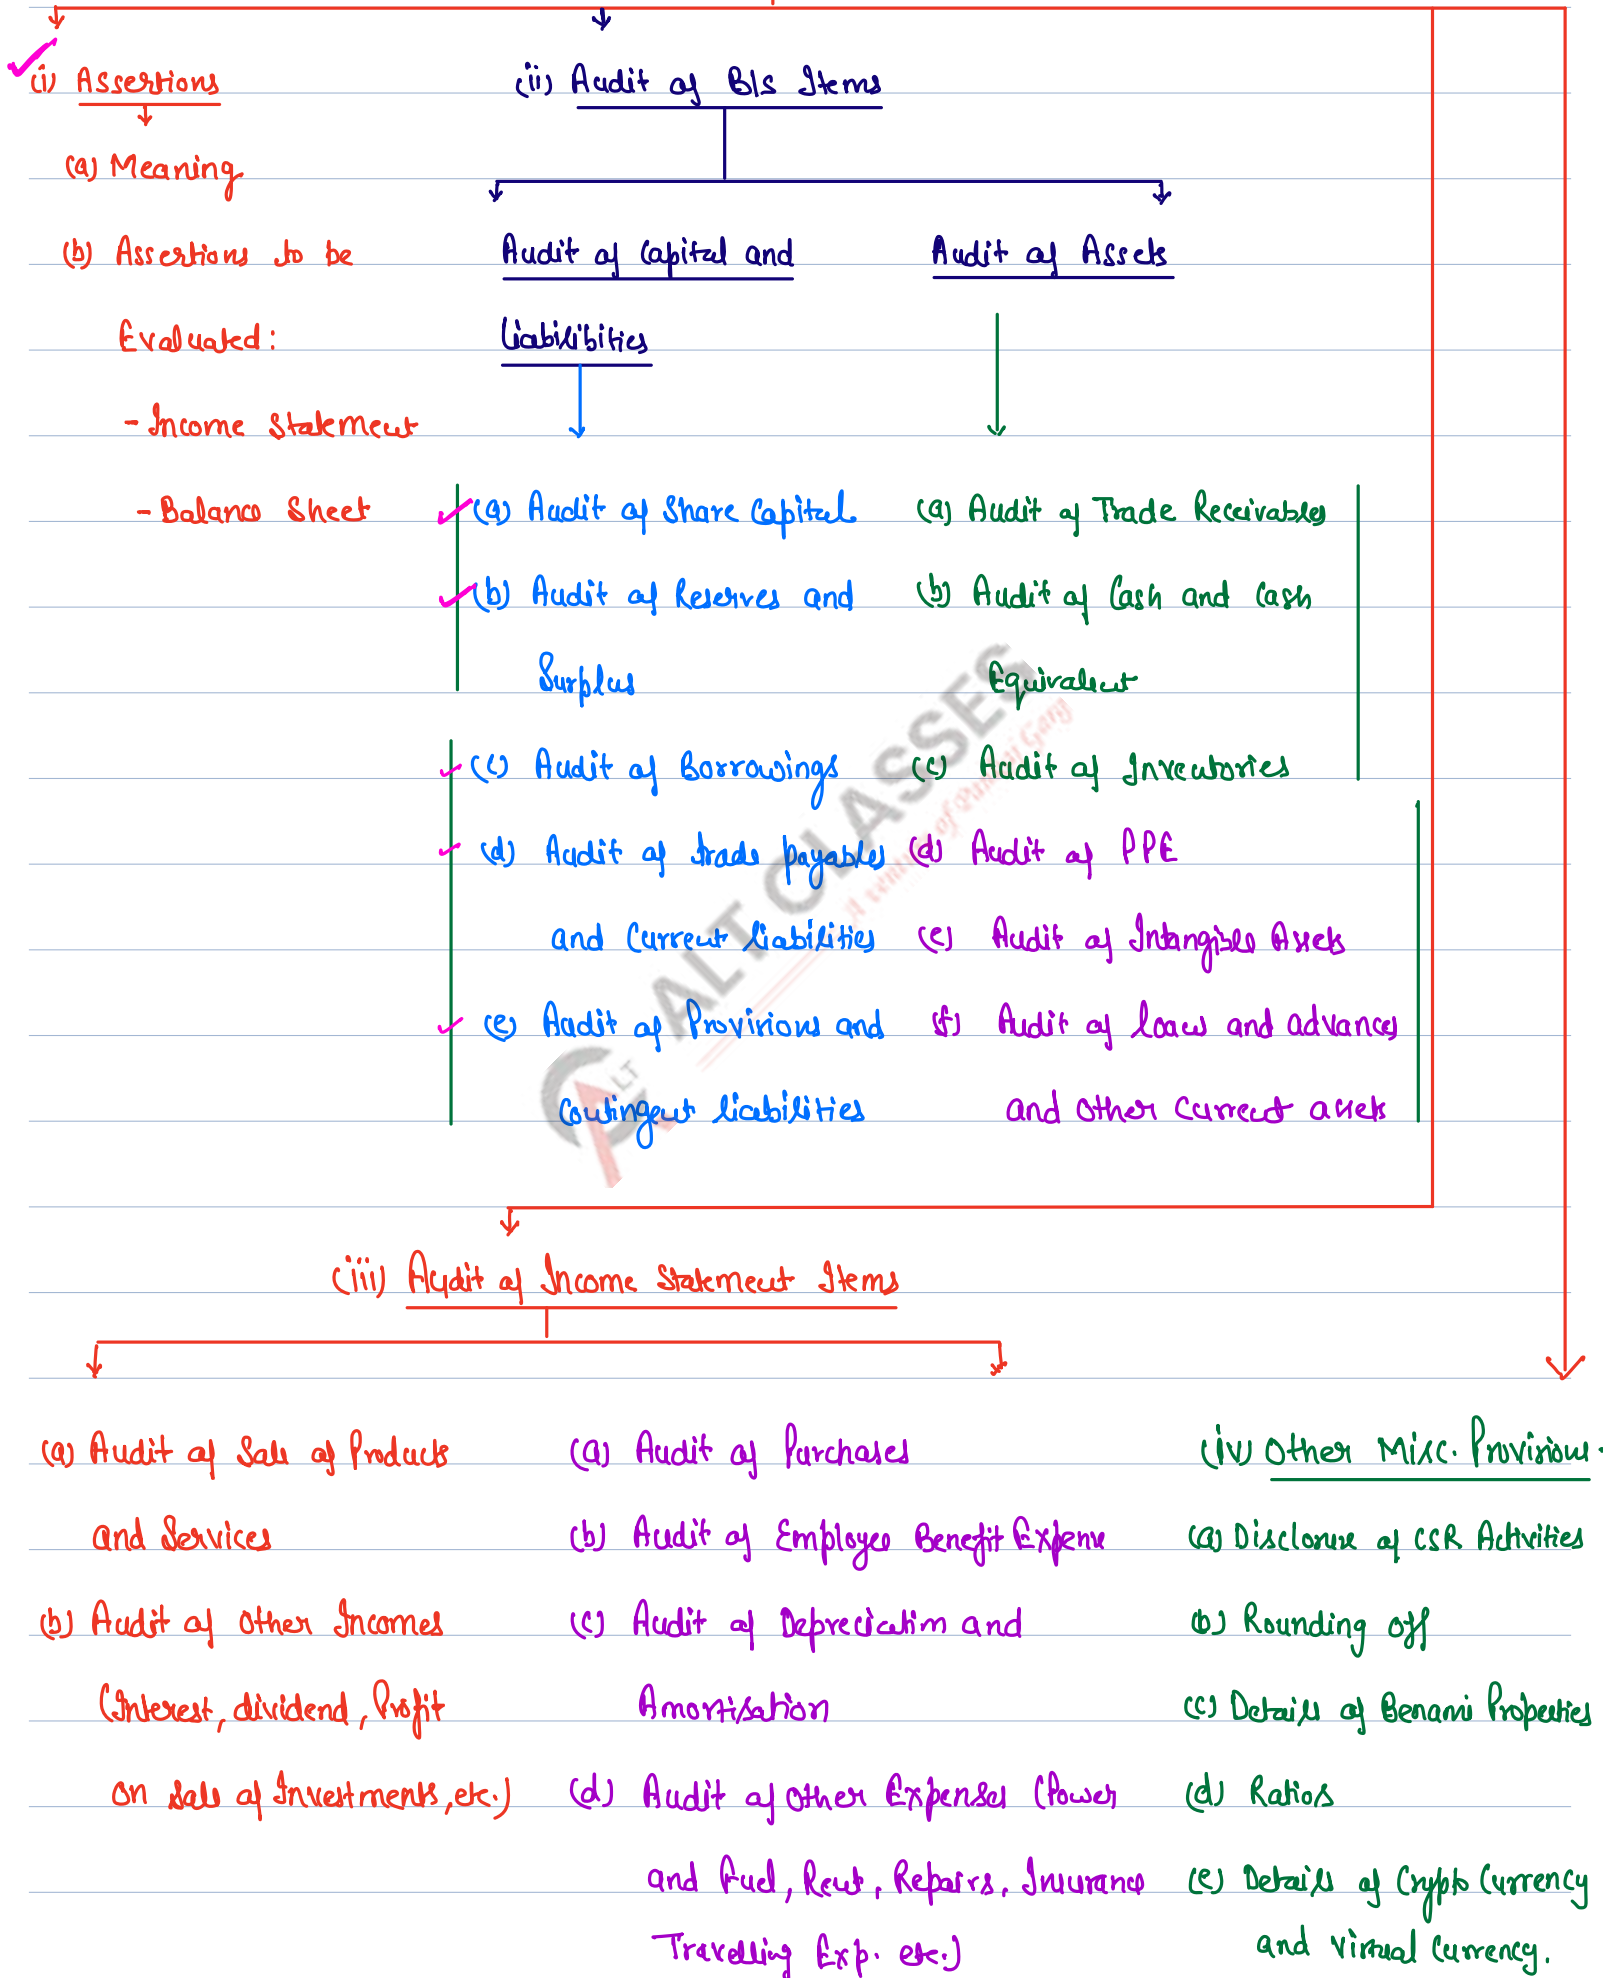 (i) Assertions
(a) Meaning
(b) Assertions to be
Evaluated:
- Income Statement
- Balance Sheet
(ii) Audit of B/S Items
Audit of Capital and
Liabilibities
(a) Audit of Share Capital
(b) Audit of Reserves and
Surplus
(c) Audit of Borrowings
(d) Audit of trade payables
and Current liabilities
(e) Audit of Provisions and
Contingent liabilities
Audit of Assets
(a) Audit of Trade Receivables
(b) Audit of Cash and Cash
Equivalent
(c) Audit of Inventories
(d) Audit of PPE
(e) Audit of Intangible Assets
(f) Audit of loans and advances
and other current assets
ALT CLASSES
LT
(iii) Audit of Income Statement Items
(a) Audit of Sale of Products
and Services
(b) Audit of Other Incomes
(Interest, dividend, Profit
on sale of Investments, etc.)
(a) Audit of Purchases
(b) Audit of Employee Benefit Expense
(c) Audit of Depreciation and
Amortisation
(d) Audit of other Expenses (Power
and Fuel, Rent, Repairs, Insurance
Travelling Exp. etc.)
(iv) Other Misc. Provisions.
(a) Disclosure of CSR Activities
(b) Rounding off
(c) Details of Benami Properties
(d) Ratios
(e) Details of Crypto Currency
and virtual currency.